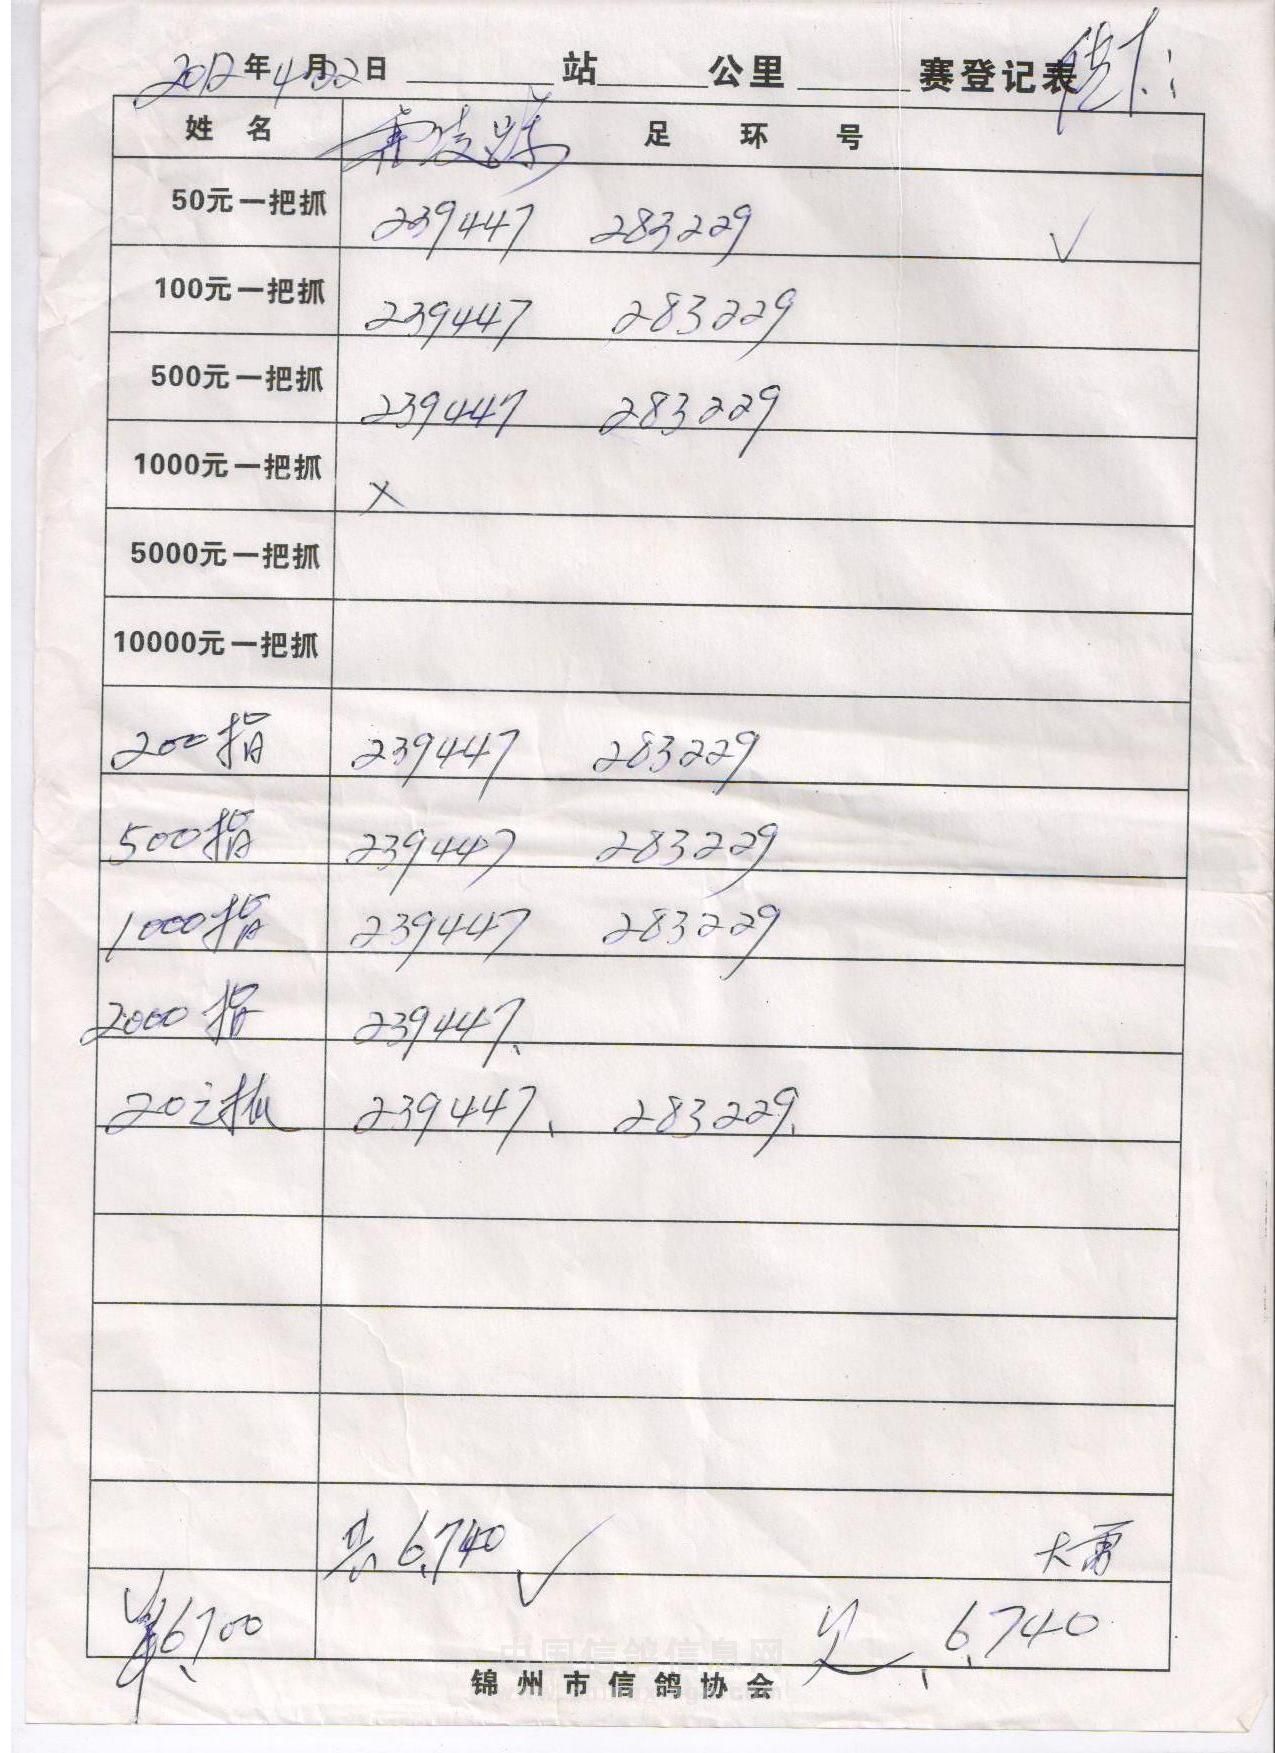 2012年4月22日 站 公里 赛登记表
姓 名 足 环 号
50元一把抓 239447 283229 √
100元一把抓 239447 283229
500元一把抓 239447 283229
1000元一把抓 ×
5000元一把抓
10000元一把抓
200指 239447 283229
500指 239447 283229
1000指 239447 283229
2000指 239447、
20元抓 239447、 283229、
共6,740 √ 大勇
6,700 6,740
中国信鸽信息网
锦州市信鸽协会